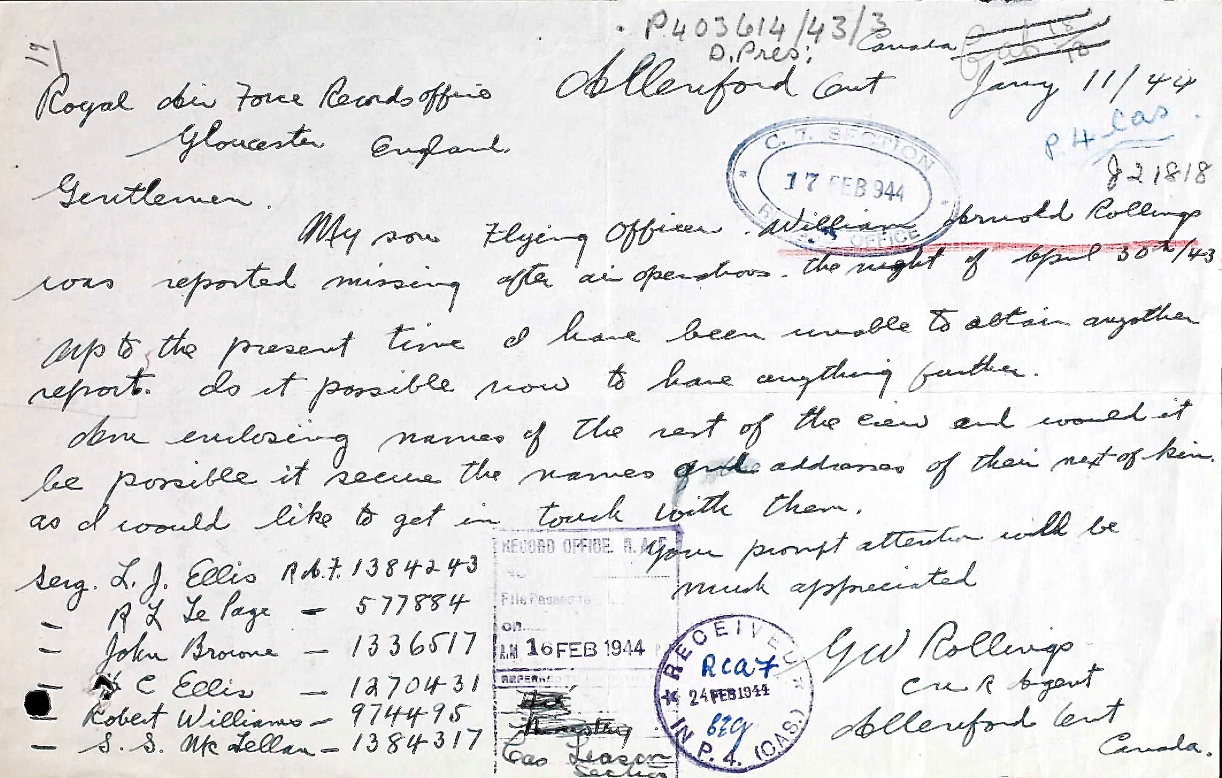 P403614/43/3
D.Pres:
17
Canada
Allenford Ont Jany 11/44
Royal Air Force Records office
Gloucester England.
P.4 Cas
J21818
C. T. SECTION
17 FEB 944
OFFICE
Gentlemen.
My son Flying Officer William Arnold Rollings
was reported missing after air operations the night of April 30th/43
up to the present time I have been unable to obtain another
report. Is it possible now to have anything further.
Am enclosing names of the rest of the crew and would it
be possible it secure the names and addresses of their next of kin.
as I would like to get in touch with them.
Your prompt attention will be
much appreciated
Serg. L. J. Ellis R.A.F. 1384243
— R L Le Page — 577884
— John Browne — 1336517
— C Ellis — 1270431
— Robert Williams — 974495
— S. S. McLellan — 1384317
RECORD OFFICE. R.A.F.
File Passed to
ON
A.M 16 FEB 1944
REFERRED TO
Cas Leason
Section
RECEIVED
RCAF
24 FEB 1944
IN P. 4. (CAS.)
GW Rollings
CNR Agent
Allenford Ont
Canada.